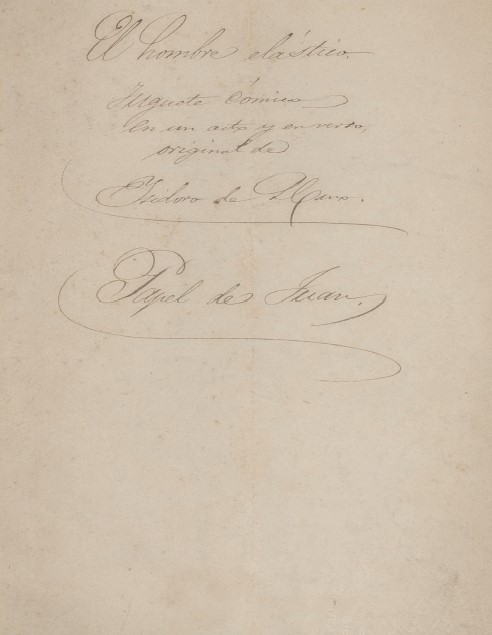 El hombre elástico.
Juguete cómico
En un acto y en verso,
original de
Ysidoro de Muro.
Papel de Juan.